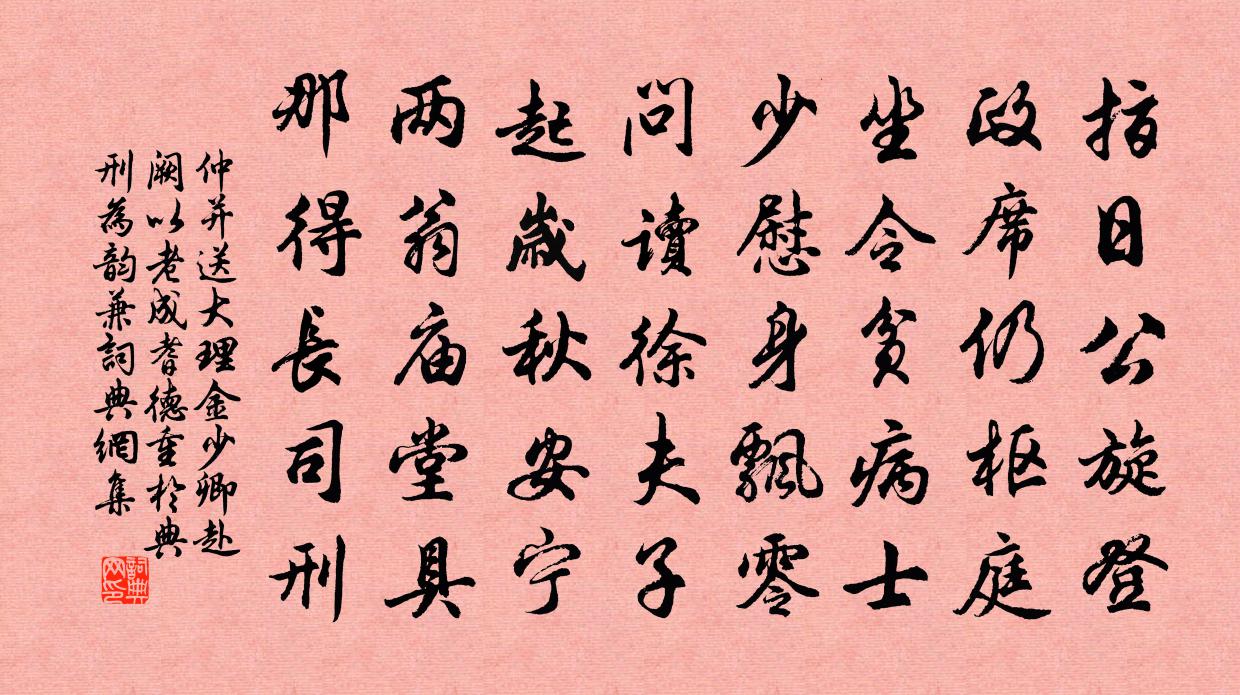 指日公旋登
政席仍枢庭
坐令贫病士
少慰身飘零
问读徐夫子
起岁秋安宁
两翁庙堂具
那得長司刑
仲并送大理金少卿赴
阙以老成耆德重於典
刑為韵兼詞典網集
詞典网印